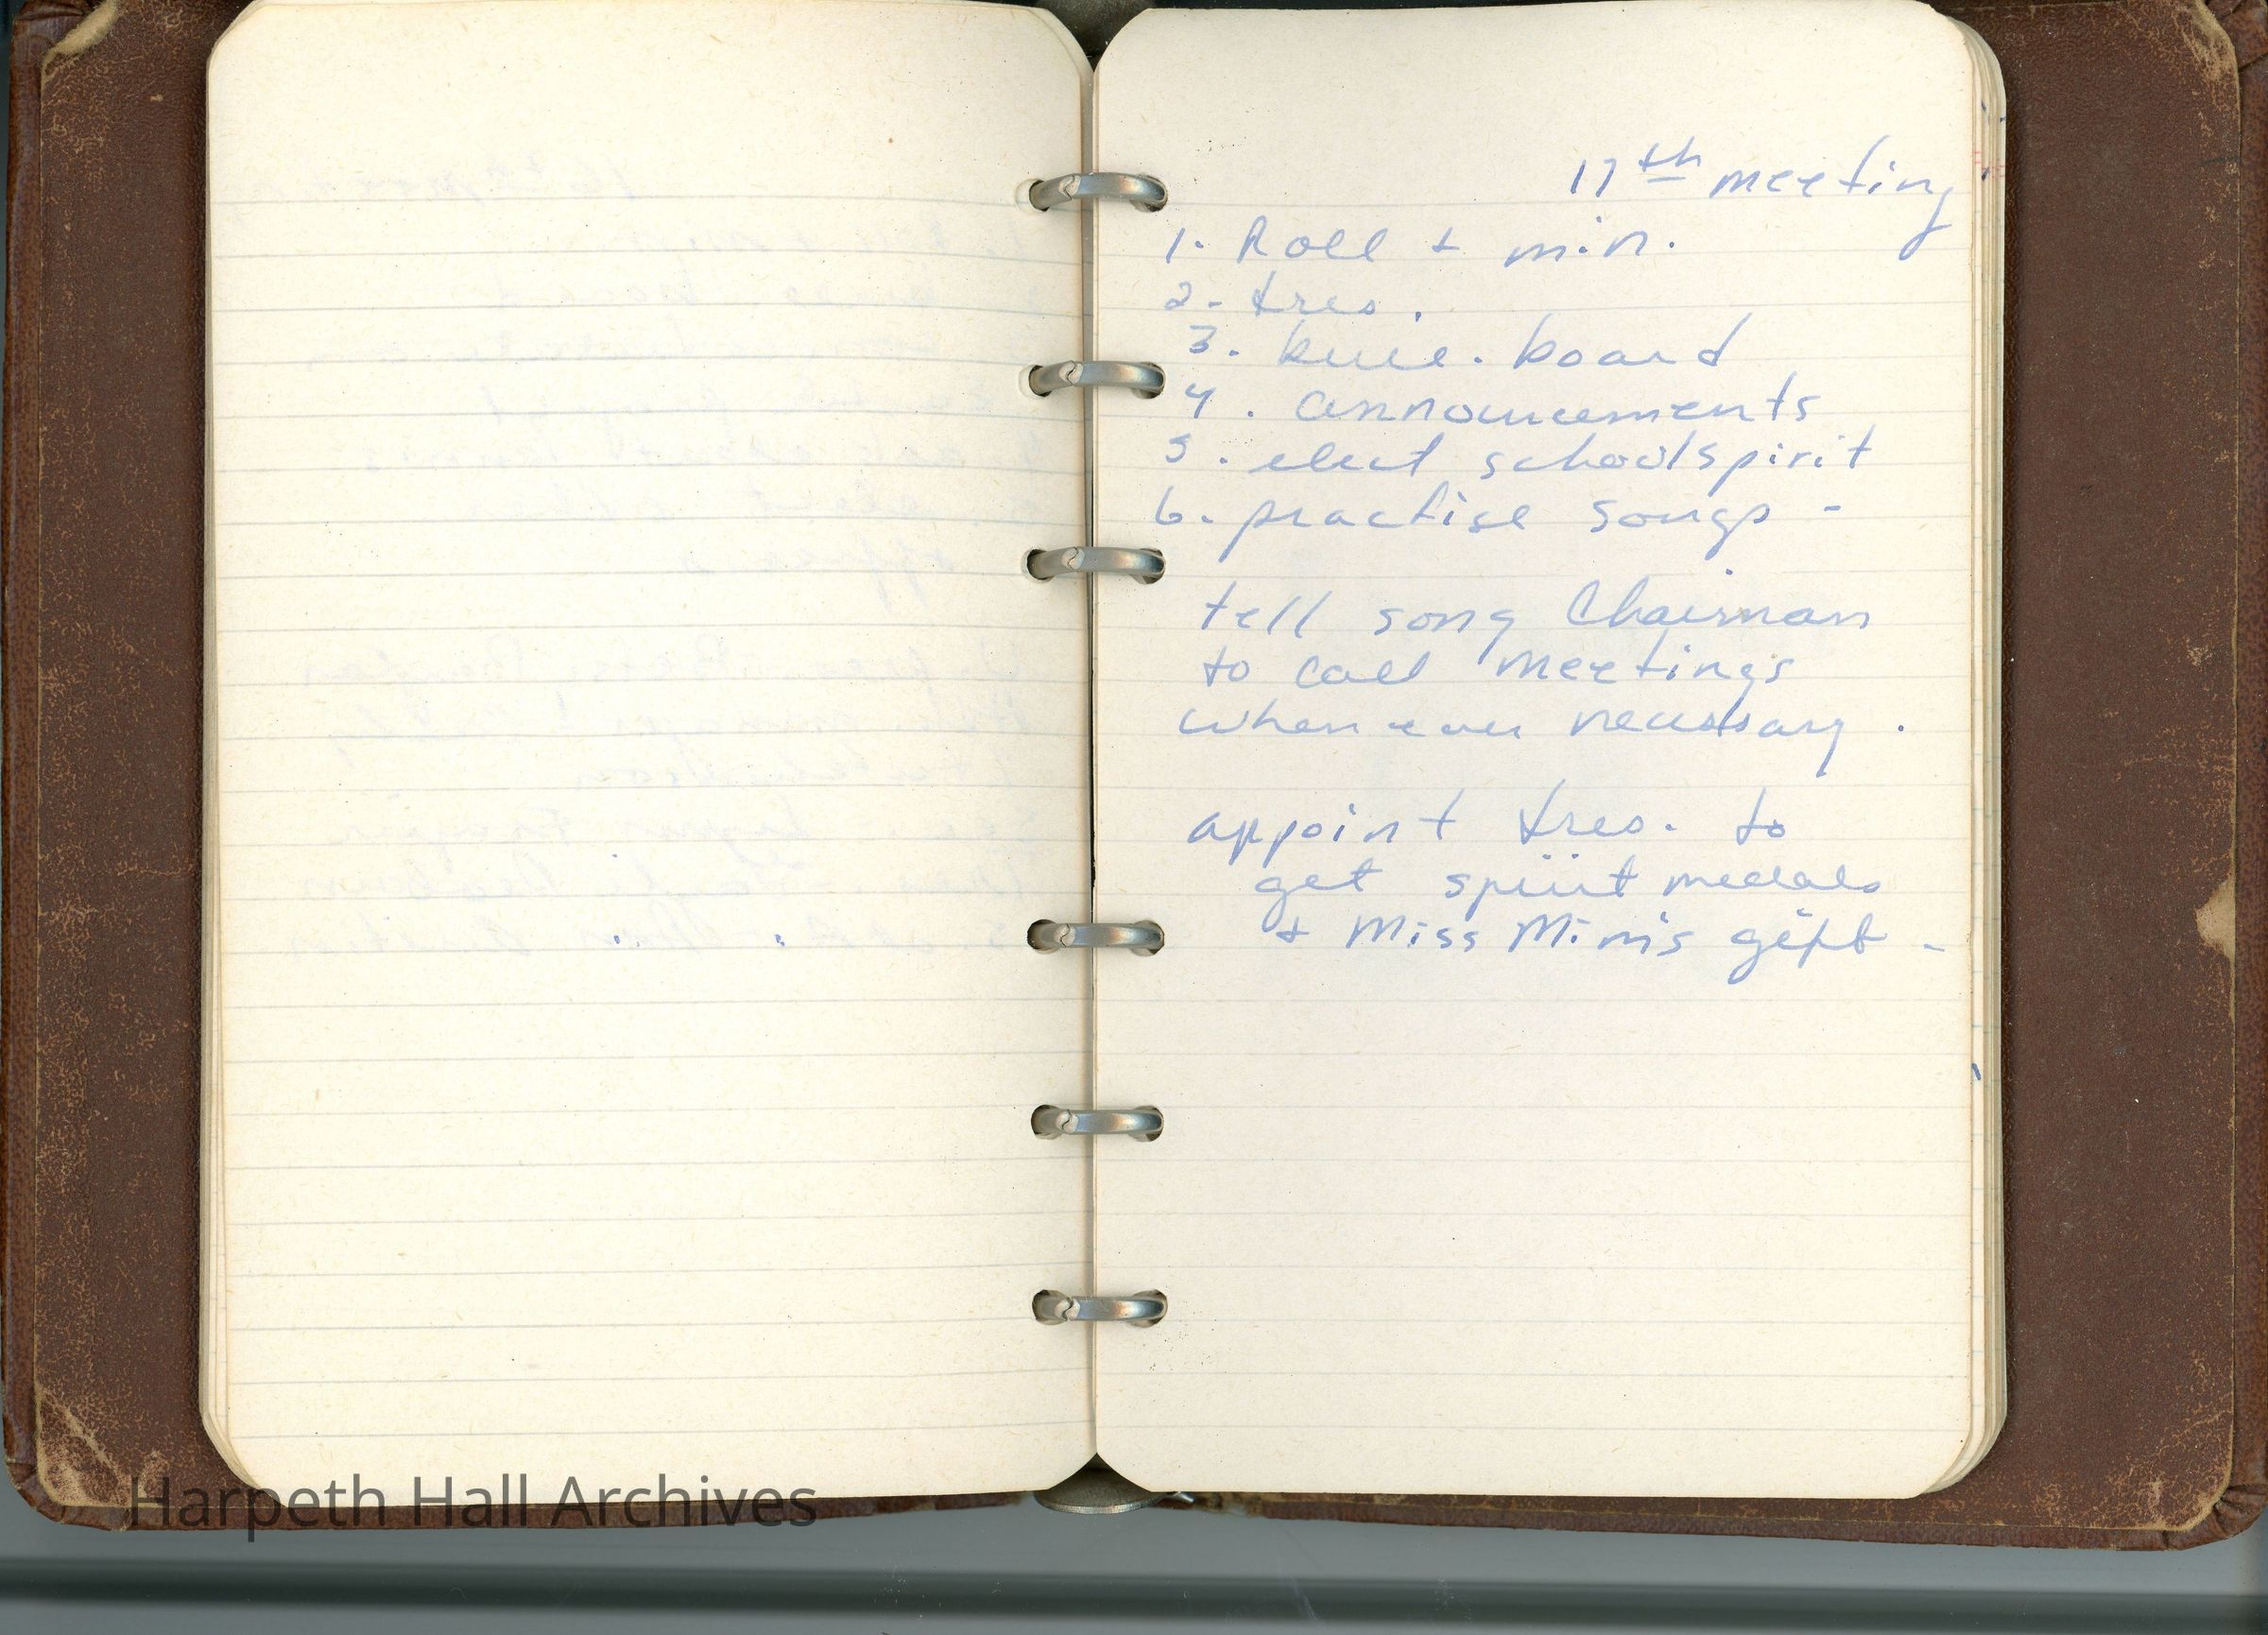 17th meeting
1. Roll + min.
2- tres.
3. bull. board
4. announcements
5. elect school spirit
6. practise songs -
tell song Chairman
to call meetings
when ever necessary.
appoint tres. to
get spirit medals
+ Miss Mim's gift -
Harpeth Hall Archives